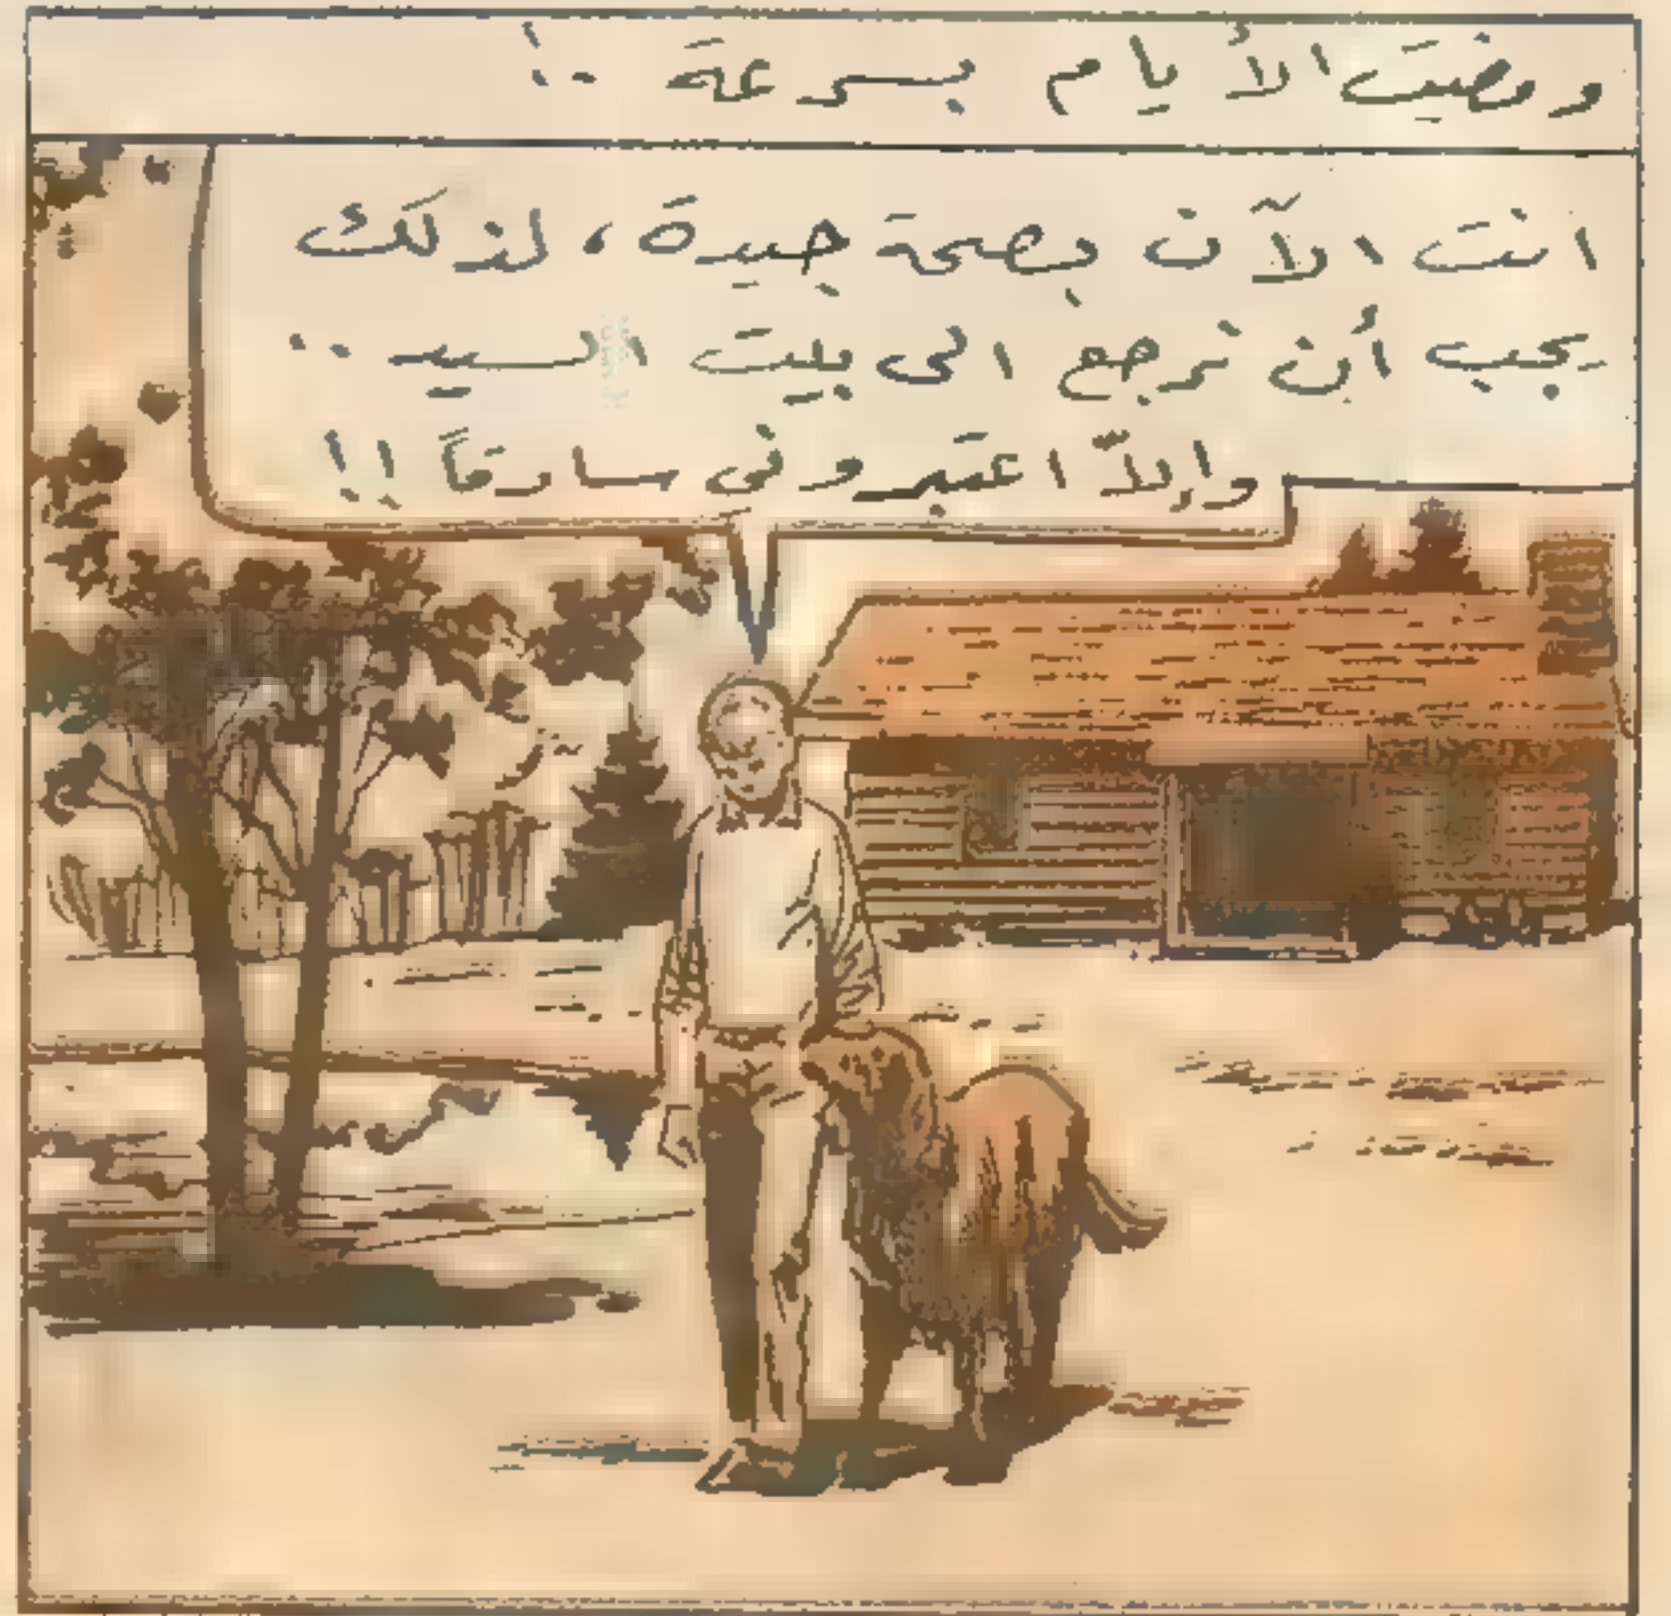 ومضت الأيام بسرعة ..!
انت الآن بصحة جيدة، لذلك
يجب أن نرجع الى بيت السيد ..
وإلاّ اعتبروني سارقاً !!